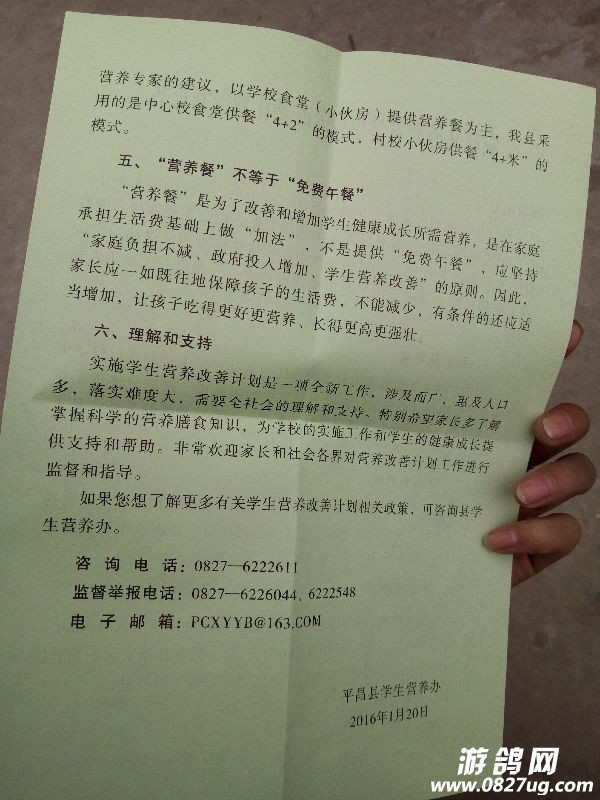 营养专家的建议，以学校食堂（小伙房）提供营养餐为主，我县采
用的是中心校食堂供餐“4+2”的模式，村校小伙房供餐“4+米”的
模式。
五、“营养餐”不等于“免费午餐”
“营养餐”是为了改善和增加学生健康成长所需营养，是在家庭
承担生活费基础上做“加法”，不是提供“免费午餐”，应坚持
“家庭负担不减、政府投入增加、学生营养改善”的原则。因此，
家长应一如既往地保障孩子的生活费，不能减少，有条件的还应适
当增加，让孩子吃得更好更营养、长得更高更强壮。
六、理解和支持
实施学生营养改善计划是一项全新工作，涉及面广，惠及人口
多，落实难度大，需要全社会的理解和支持。特别希望家长多了解
掌握科学的营养膳食知识，为学校的实施工作和学生的健康成长提
供支持和帮助。非常欢迎家长和社会各界对营养改善计划工作进行
监督和指导。
如果您想了解更多有关学生营养改善计划相关政策，可咨询县学
生营养办。
咨询电话：0827—6222611
监督举报电话：0827—6226044、6222548
电子邮箱：PCXYYB@163.COM
平昌县学生营养办
2016年1月20日
游鸽网
www.0827ug.com